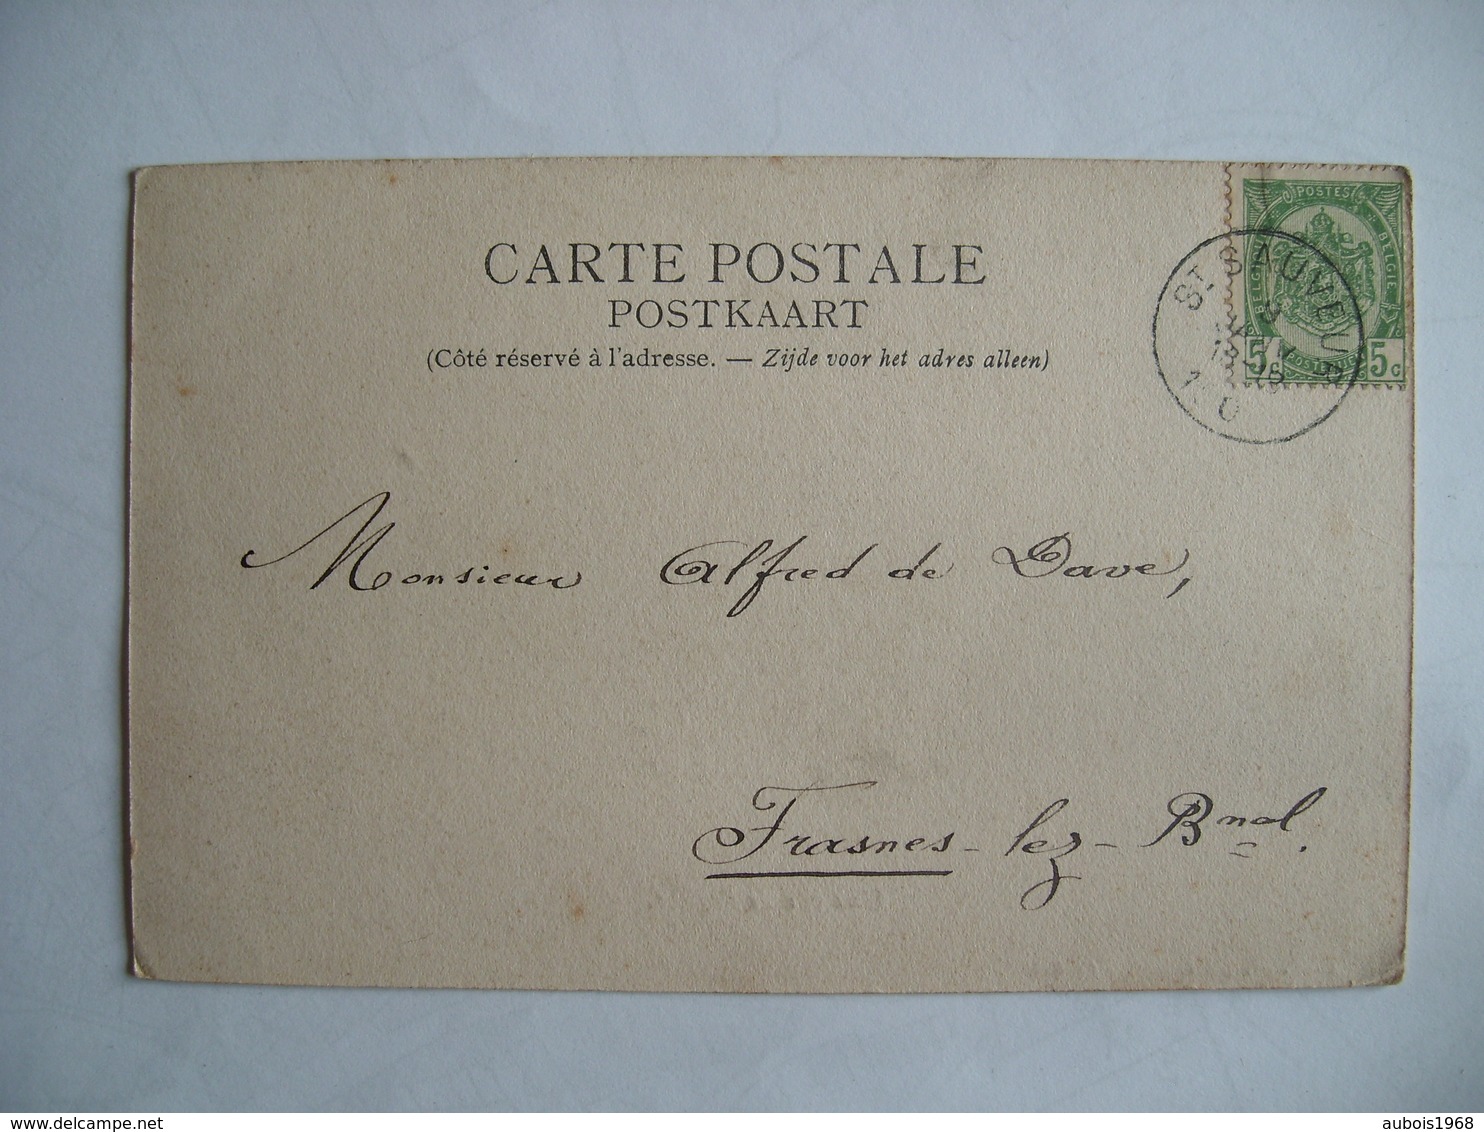 CARTE POSTALE
POSTKAART
(Côté réservé à l'adresse. — Zijde voor het adres alleen)
POSTES
BELGIE
BELGIQUE
5c 5c
ST. SAUVEUR
Monsieur Alfred de Dave,
Frasnes-lez-Bnal.
aubois1968